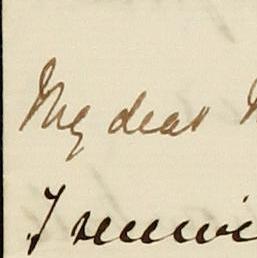 My dear
I receive